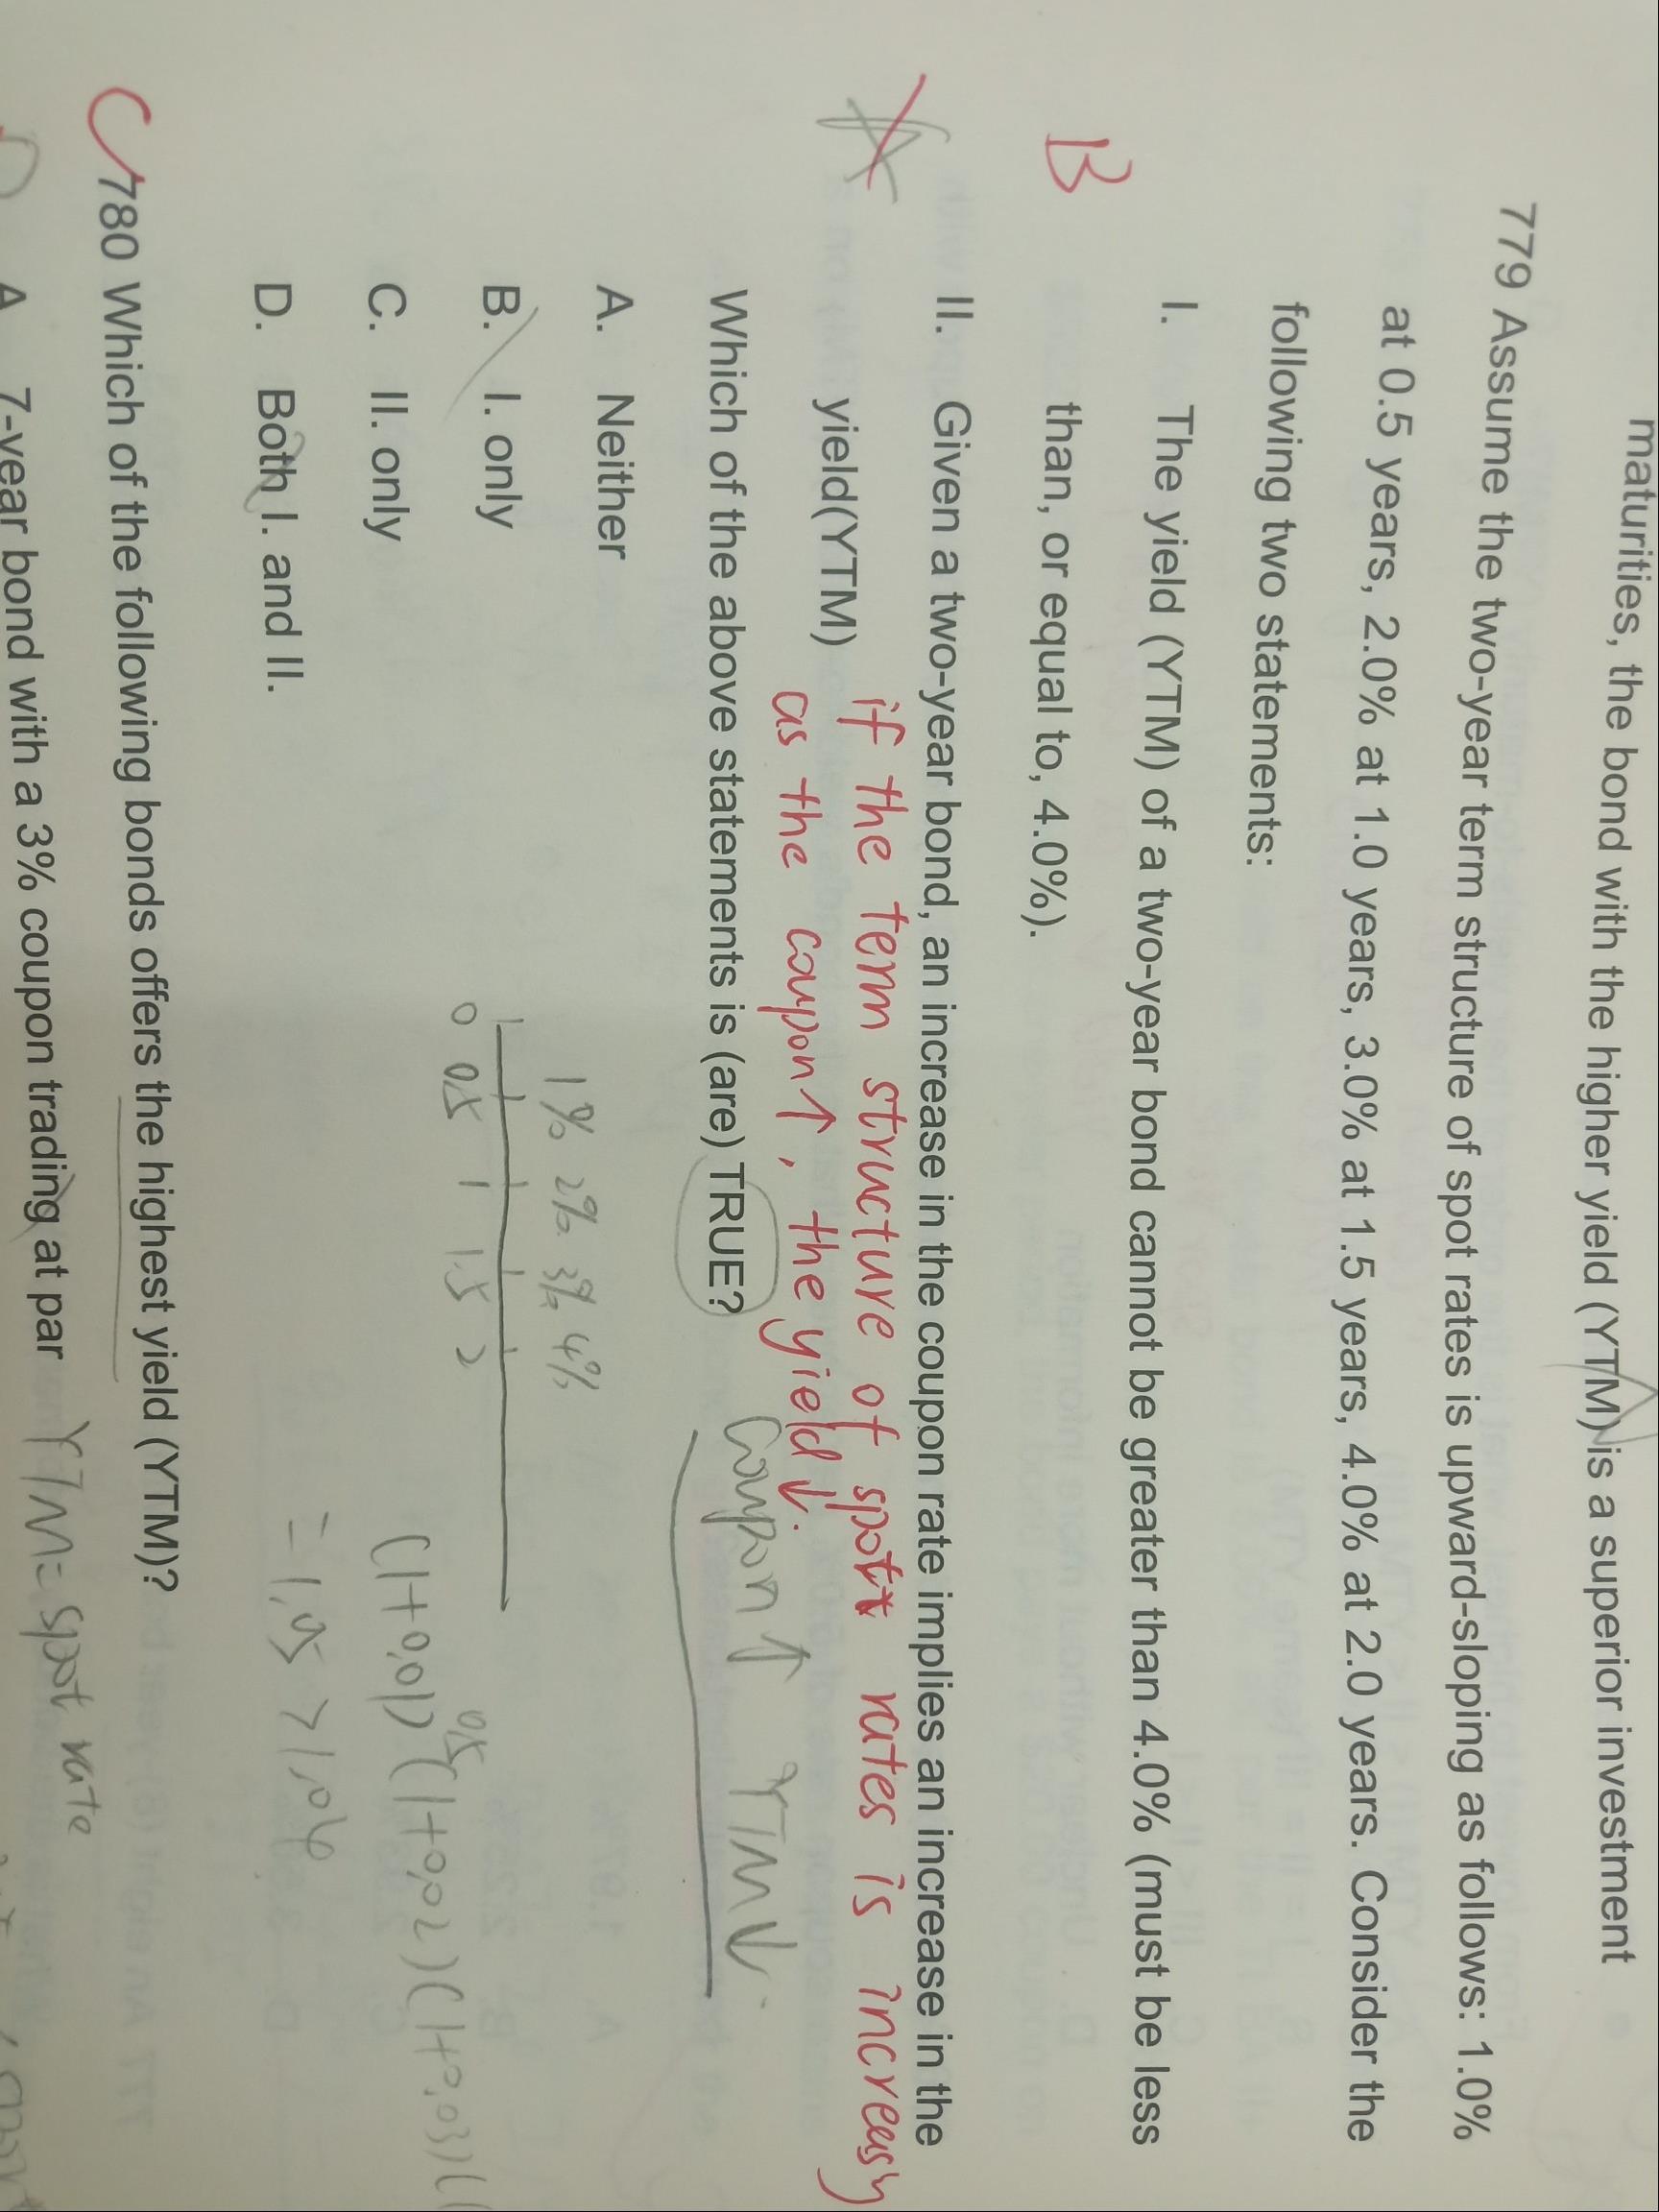 maturities, the bond with the higher yield (YTM) is a superior investment
779 Assume the two-year term structure of spot rates is upward-sloping as follows: 1.0%
at 0.5 years, 2.0% at 1.0 years, 3.0% at 1.5 years, 4.0% at 2.0 years. Consider the
following two statements:
I. The yield (YTM) of a two-year bond cannot be greater than 4.0% (must be less
B than, or equal to, 4.0%).
II. Given a two-year bond, an increase in the coupon rate implies an increase in the
A yield(YTM) if the term structure of spot rates is increasy
as the coupon↑, the yield↓.
Which of the above statements is (are) TRUE? coupon↑ YTM↓
A. Neither
1% 2% 3% 4%
B. I. only
0 0.5 1 1.5 2
C. II. only (1+0.01)^0.5 (1+0.02)(1+0.03)(
D. Both I. and II. = 1.05 > 1.04
C 780 Which of the following bonds offers the highest yield (YTM)?
D A 7-year bond with a 3% coupon trading at par YTM = spot rate